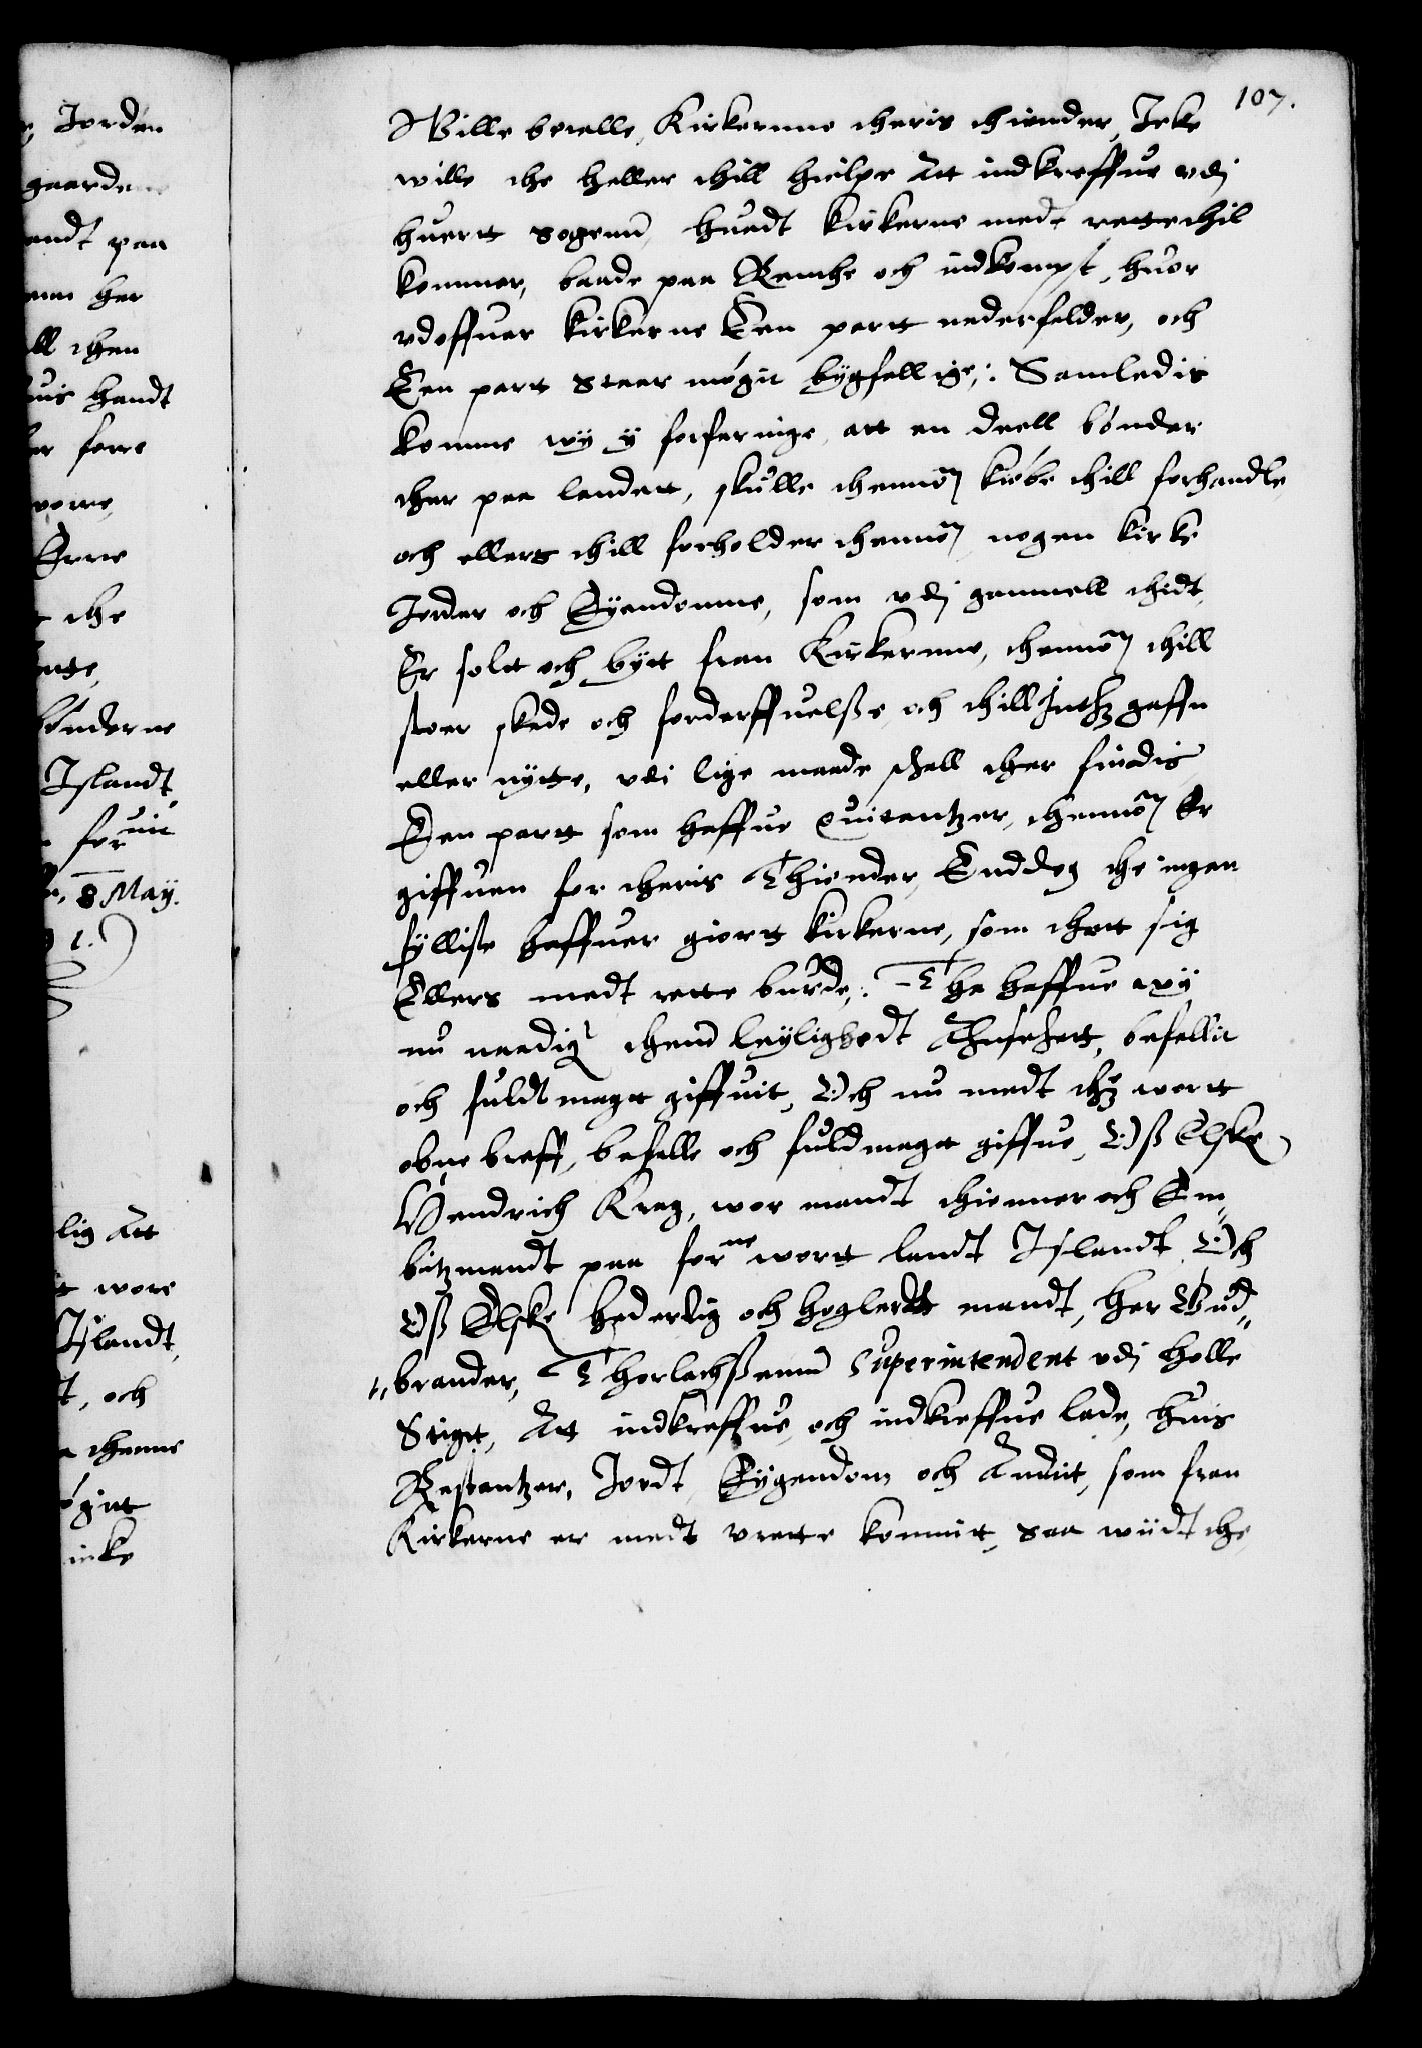 107.
Wille betalle, Kirkernne theris thiender, Icke
wille the heller thill hielpe Att indkreffue vdj
huertt Sogenn, huadt kirkerne medt rette thil
kommer, baade paa Renthe och indkompst, huor
vdoffuer kirkerne Een partt nederfalder, och
Een partt Staar møgit bygfellige,: Samledis
komme wy y forfaringe, att en deell bønder
ther paa landett, skulle thennom kiøbe thill forhandle
och ellers thill forholder thennom nogen kirke
Jorder och Eyendomme, som vdj gammell thidt,
Er soltt och bytt fran Kirkernne, thennom thill
stoer skade och forderffuelße, och thill Inthz gaffn
eller nytte, vdi lige maade schall ther findis
Een partt som haffue Quitantzer, thennom Er
giffuen for theris Thiender, Enddog the ingen
fylliste haffuer giortt kirkerne, som thett sig
Ellers medt rette burde,: Tha haffue wy
nu naadigst thenn leylighedt Ahnsehett, befallit
och fuldtmagt giffuit, Och nu medt thz wortt
obne breff, befalle och fuldmagt giffue, Oß Elske
Hendrich Krag, wor mandt thienner och Em,,
bitzmandt paa forne wortt landt Islandt, Och
Oß Elske hederlig och høglerdtt mandt, her Gud,,
,,brander, Thorlachßenn Superintendent vdj Holle
Stigt, Att indkreffue, och indkreffue lade, huis
Restantzer, Jordt, Eygendom och Andit, som fran
Kirkerne er medt vrette kommitt, saa wiidt the,
Jorden
gaarden
andt paa
her
ll then
uis handt
forre
worre,
Erre
the
ntte,
bønderne
Islandt,
for uit
8 May.
1.
lig Att
t wore
Islandt,
t, och
thenne
øgitt
icke